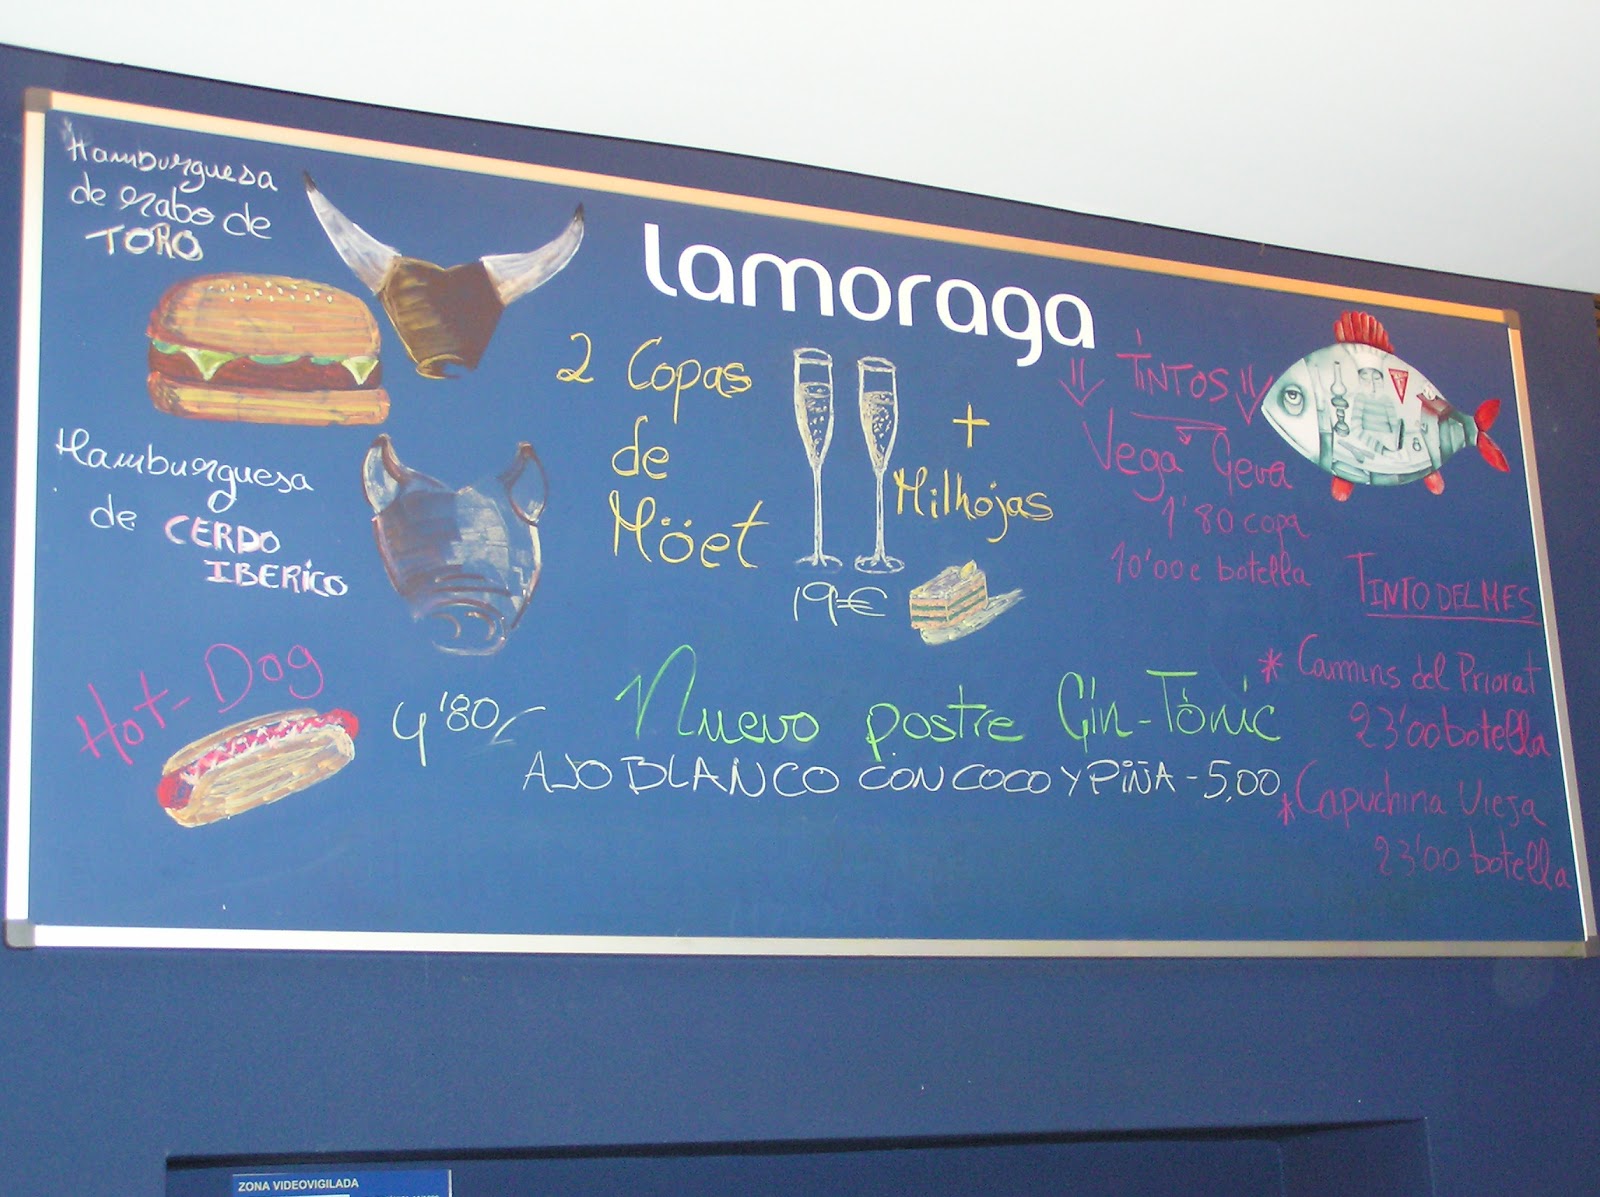 Hamburguesa
de rabo de
TORO
Hamburguesa
de CERDO
IBERICO
Hot-Dog
4'80
lamoraga
2 Copas
de
Möet
+
Milhojas
19€
Nuevo postre Gin-Tónic
AJOBLANCO CON COCO Y PIÑA - 5,00
TINTOS
Vega Geva
1'80 copa
10'00€ botella
TINTO DEL MES
* Camins del Priorat
23'00 botella
* Capuchina Vieja
23'00 botella
ZONA VIDEOVIGILADA